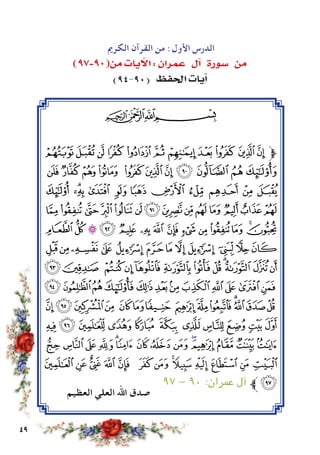 الدرس الأول: من القرآن الكريم
من سورة آل عمران: الآيات من (٩٠-٩٧)
آيات الحفظ (٩٠-٩٤)
بِسْمِ ٱللَّهِ ٱلرَّحْمَٰنِ ٱلرَّحِيمِ
﴿ إِنَّ ٱلَّذِينَ كَفَرُوا۟ بَعْدَ إِيمَٰنِهِمْ ثُمَّ ٱزْدَادُوا۟ كُفْرًا لَّن تُقْبَلَ تَوْبَتُهُمْ
وَأُو۟لَٰٓئِكَ هُمُ ٱلضَّآلُّونَ ٩٠ إِنَّ ٱلَّذِينَ كَفَرُوا۟ وَمَاتُوا۟ وَهُمْ كُفَّارٌ فَلَن
يُقْبَلَ مِنْ أَحَدِهِم مِّلْءُ ٱلْأَرْضِ ذَهَبًا وَلَوِ ٱفْتَدَىٰ بِهِۦٓ أُو۟لَٰٓئِكَ
لَهُمْ عَذَابٌ أَلِيمٌ وَمَا لَهُم مِّن نَّٰصِرِينَ ٩١ لَن تَنَالُوا۟ ٱلْبِرَّ حَتَّىٰ تُنفِقُوا۟ مِمَّا
تُحِبُّونَ وَمَا تُنفِقُوا۟ مِن شَىْءٍ فَإِنَّ ٱللَّهَ بِهِۦ عَلِيمٌ ٩٢ ۞ كُلُّ ٱلطَّعَامِ
كَانَ حِلًّا لِّبَنِىٓ إِسْرَٰٓءِيلَ إِلَّا مَا حَرَّمَ إِسْرَٰٓءِيلُ عَلَىٰ نَفْسِهِۦ مِن قَبْلِ
أَن تُنَزَّلَ ٱلتَّوْرَىٰةُ قُلْ فَأْتُوا۟ بِٱلتَّوْرَىٰةِ فَٱتْلُوهَآ إِن كُنتُمْ صَٰدِقِينَ ٩٣
فَمَنِ ٱفْتَرَىٰ عَلَى ٱللَّهِ ٱلْكَذِبَ مِنۢ بَعْدِ ذَٰلِكَ فَأُو۟لَٰٓئِكَ هُمُ ٱلظَّٰلِمُونَ ٩٤
قُلْ صَدَقَ ٱللَّهُ فَٱتَّبِعُوا۟ مِلَّةَ إِبْرَٰهِيمَ حَنِيفًا وَمَا كَانَ مِنَ ٱلْمُشْرِكِينَ ٩٥ إِنَّ
أَوَّلَ بَيْتٍ وُضِعَ لِلنَّاسِ لَلَّذِى بِبَكَّةَ مُبَارَكًا وَهُدًى لِّلْعَٰلَمِينَ ٩٦ فِيهِ
ءَايَٰتٌۢ بَيِّنَٰتٌ مَّقَامُ إِبْرَٰهِيمَ وَمَن دَخَلَهُۥ كَانَ ءَامِنًا وَلِلَّهِ عَلَى ٱلنَّاسِ حِجُّ
ٱلْبَيْتِ مَنِ ٱسْتَطَاعَ إِلَيْهِ سَبِيلًا وَمَن كَفَرَ فَإِنَّ ٱللَّهَ غَنِىٌّ عَنِ ٱلْعَٰلَمِينَ
٩٧ ﴾ آل عمران: ٩٠ – ٩٧
صدق الله العلي العظيم
٤٩